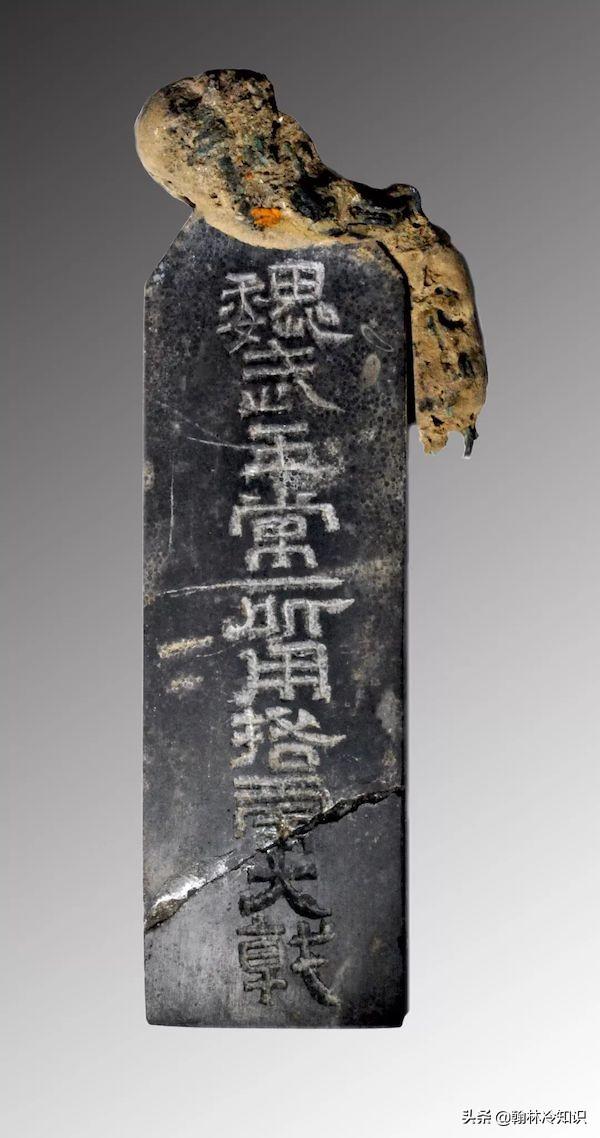 魏武王常所用挌虎大戟
头条 @翰林冷知识